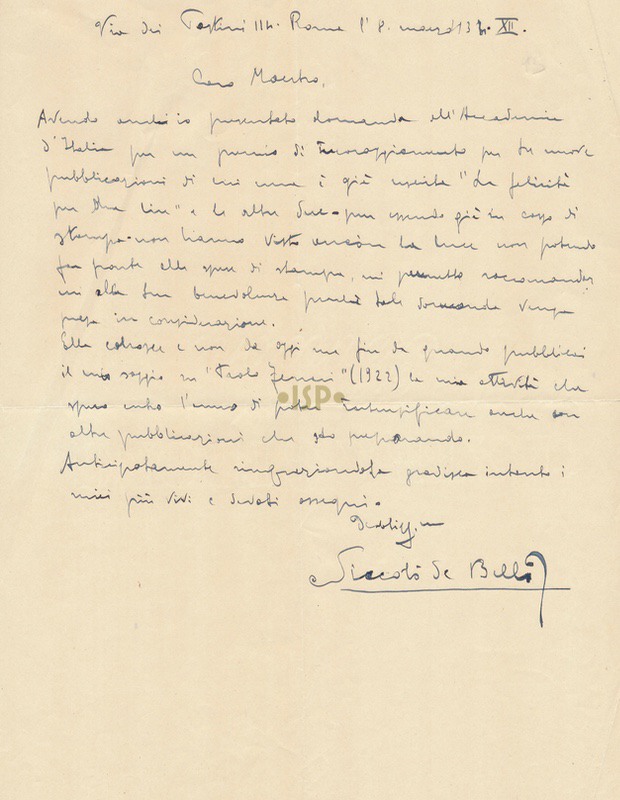 Via dei Roma l'8 marzo XII.
Caro Maestro,
Avendo anch'io presentato domanda all'Accademia
d'Italia per un premio di incoraggiamento per tre nuove
pubblicazioni di cui una è già uscita "La felicità
per " e le altre due - pur essendo già in corso di
stampa - non hanno visto ancòra la luce non potendo
far fronte alle spese di stampa, mi permetto raccomandar
mi alla Sua benevolenza perchè tale domanda venga
presa in considerazione.
Ella conosce e non da oggi ma fin da quando pubblicai
il mio saggio su " " (1922) la mia attività che
spero entro l'anno di poter intensificare anche con
altre pubblicazioni che sto preparando.
Anticipatamente ringraziandoLa gradisca intanto i
miei più vivi e devoti ossequi.
Niccolò de Bellis
•ISP•